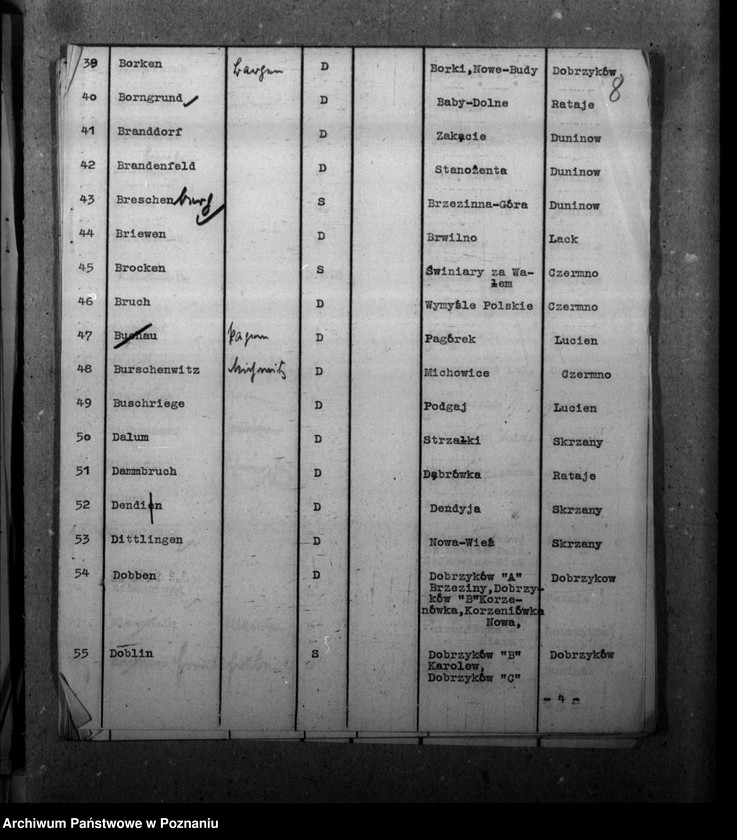 8
39 Borken Bargen D Borki,Nowe-Budy Dobrzyków
40 Borngrund D Baby-Dolne Rataje
41 Branddorf D Zakącie Duninow
42 Brandenfeld D Stanożenta Duninow
43 Breschenburg S Brzezinna-Góra Duninow
44 Briewen D Brwilno Łack
45 Brocken S Świniary za Wa-
łem Czermno
46 Bruch D Wymyśle Polskie Czermno
47 Buchau D Pagórek Lucien
48 Burschenwitz D Michowice Czermno
49 Buschriege D Podgaj Lucien
50 Dalum D Strzałki Skrzany
51 Dammbruch D Dąbrówka Rataje
52 Dendien D Dendyja Skrzany
53 Dittlingen D Nowa-Wieś Skrzany
54 Dobben D Dobrzyków "A" Dobrzykow
Brzeziny,Dobrzy-
ków "B"Korze-
nówka,Korzeniówka
Nowa,
55 Döblin S Dobrzyków "B" Dobrzyków
Karolew,
Dobrzyków "C"
- 4 -
Archiwum Państwowe w Poznaniu